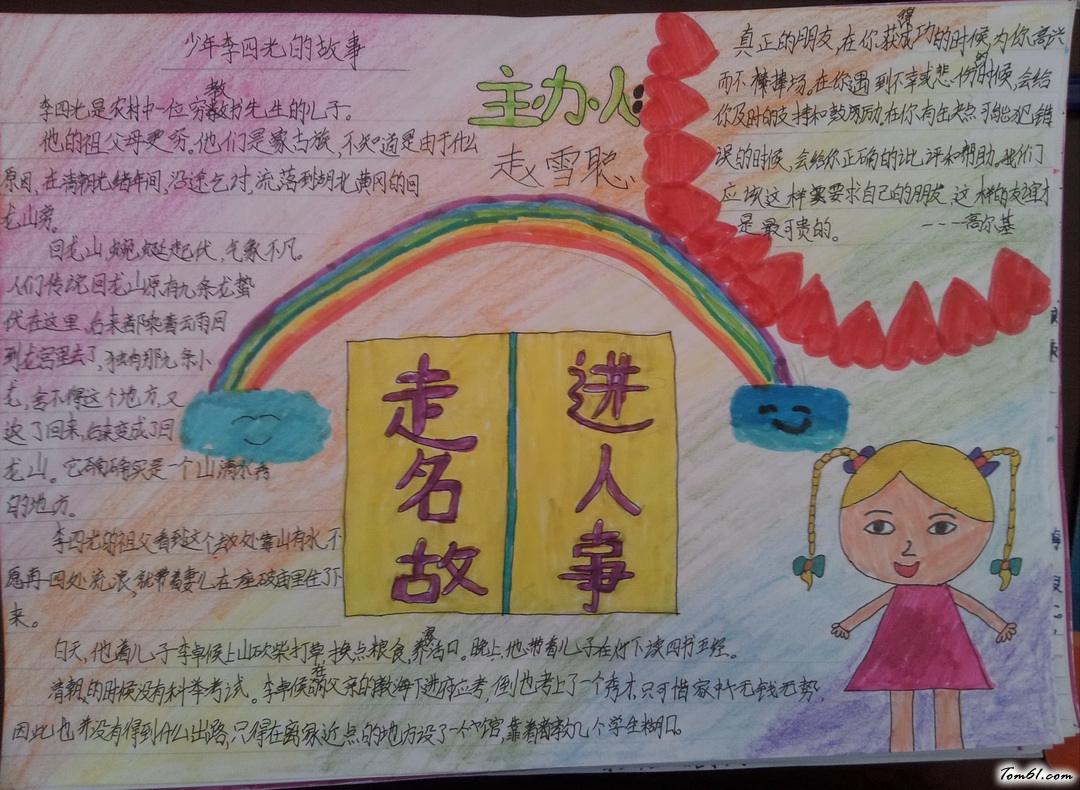 少年李四光的故事
李四光是农村中一位穷教书先生的儿子。
他的祖父母更穷。他们是蒙古族,不知道是由于什么
原因,在清朝光绪年间,沿途乞讨,流落到湖北黄冈的回
龙山旁。
回龙山,蜿蜒起伏,气象不凡。
人们传说回龙山原有九条龙蛰
伏在这里,后来都乘着云雨回
到龙宫里去了,独有那九条小
龙,舍不得这个地方,又
返了回来,后来变成了回
龙山。它确确实实是一个山清水秀
的地方。
李四光的祖父看到这个去处靠山有水,不
愿再四处流浪,就带着妻儿在一座破庙里住了下
来。
白天,他着儿子李卓候上山砍柴打草,换点粮食,养家活口。晚上,他带着儿子在灯下读四书五经。
清朝的时候没有科举考试。李卓候在父亲的教海下进府应考,倒也考上了一个秀才,只可惜家中无钱无势,
因此也并没有得到什么出路,只得在离家近点的地方设了一个馆,靠着教几个学生糊口。
主办人:
走雪聪
真正的朋友,在你获得成功的时候,为你高兴
而不捧场。在你遇到不幸或悲伤的时候,会给
你及时的支持和鼓励,在你有缺点可能犯错
误的时候,会给你正确的批评和帮助。我们
应该这样要求自己的朋友,这样的友谊才
是最可贵的。 ---高尔基
走进
名人
故事
Tom61.com